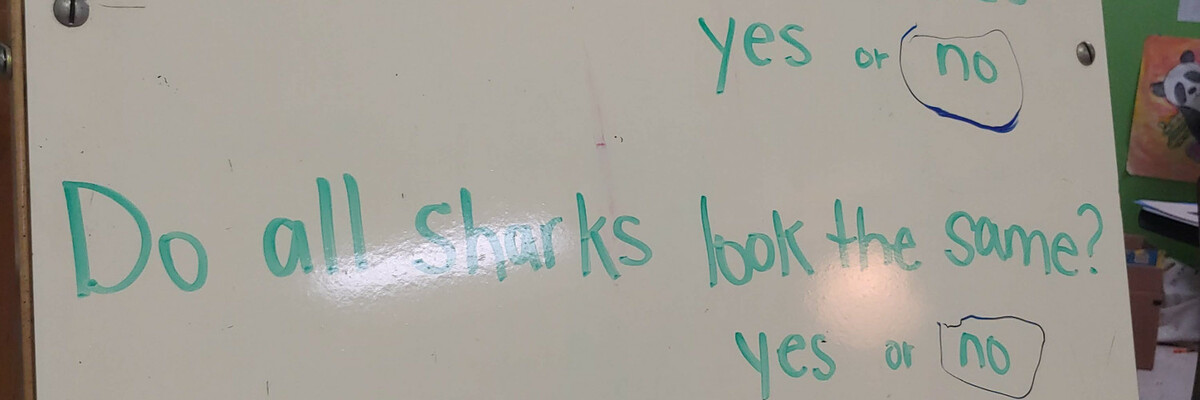 yes or no
Do all sharks look the same?
yes or no